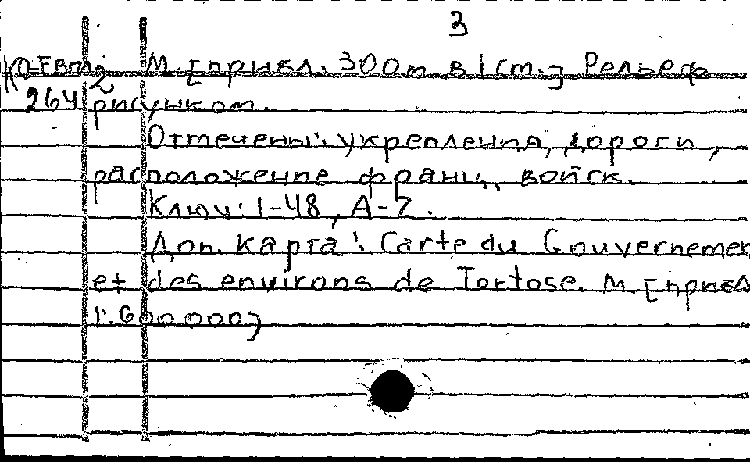 3
М. [прибл. 300 м в 1 см.] Рельеф
264 рисунком.
Отмечены: укрепления, дороги,
расположение франц. войск.
Ключ: 1-48, A-Z.
Доп. карта: Carte du Gouvernemen
et des environs de Tortose. М. [прибл
1:600000]